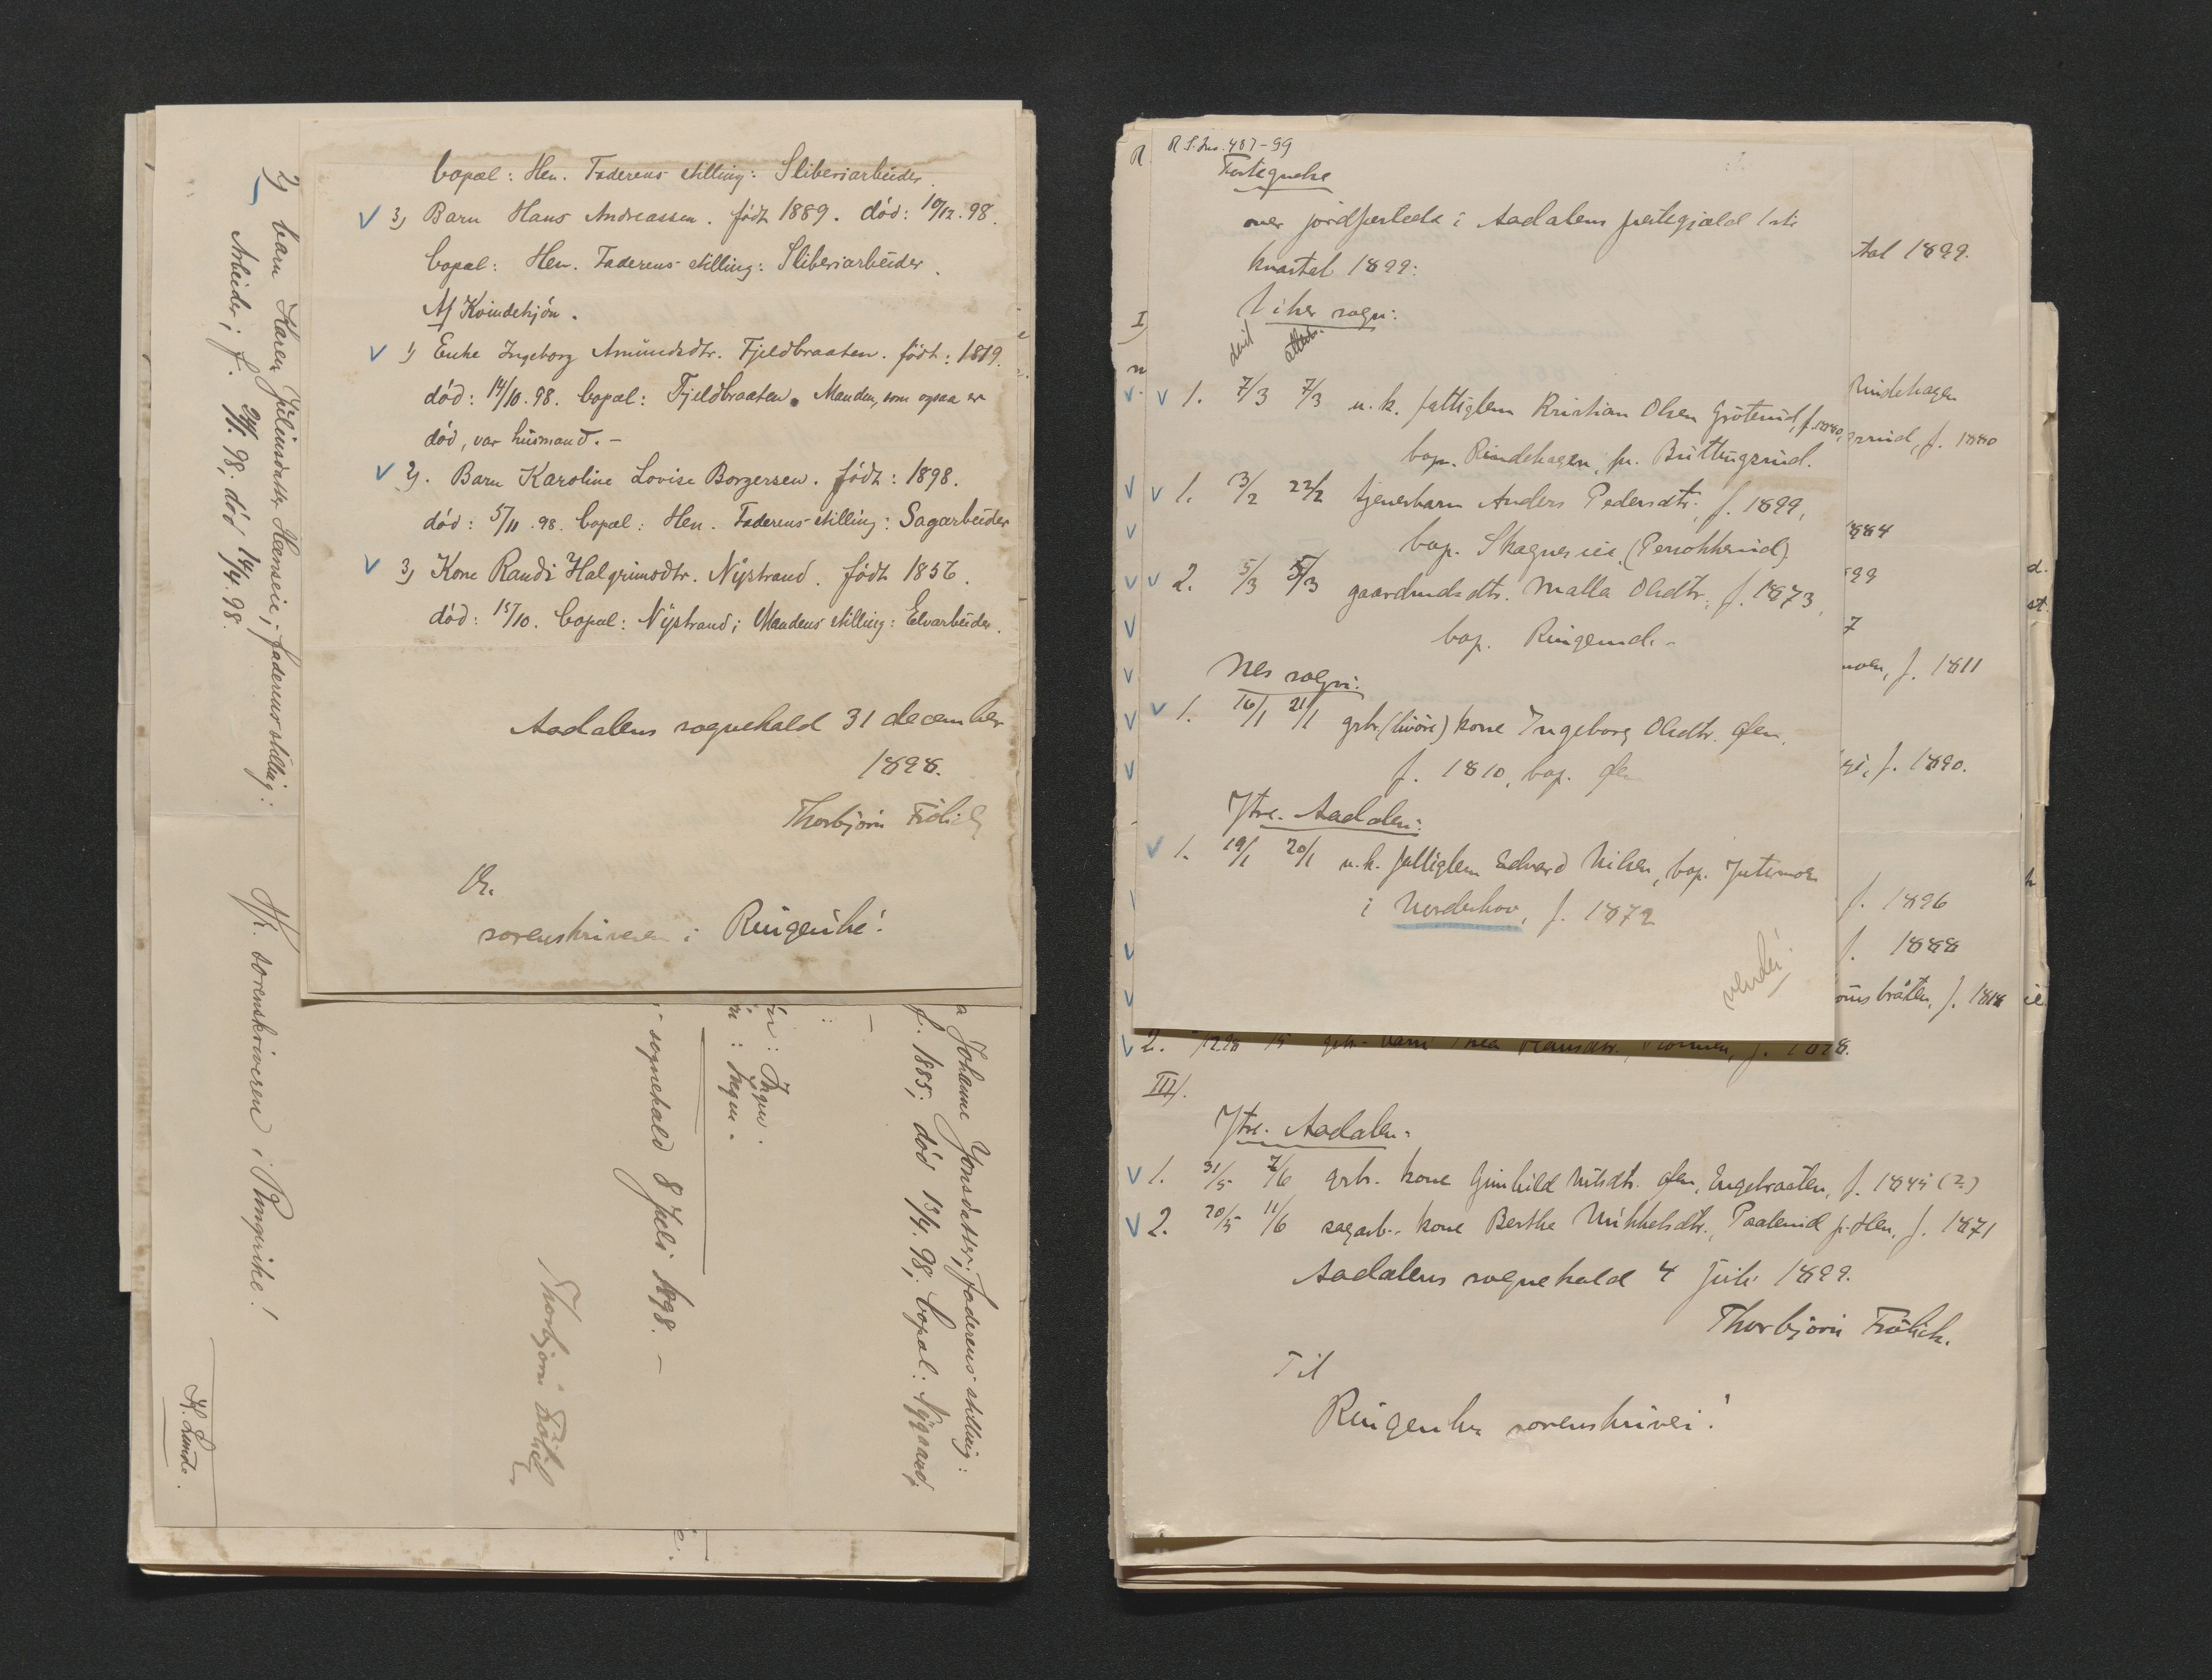 bopæl: Hen. Faderens stilling: Sliberiarbeider.
3) Barn Hans Andreassen. født 1889. død: 10/12. 98.
bopæl: Hen. Faderens stilling: Sliberiarbeider.
Af Kvindekjön.
1) Enke Ingeborg Amundsdtr. Fjeldbraaten. født: 1819.
død: 14/10. 98. bopæl: Fjeldbraaten. Manden, som ogsaa er
død, var husmand. -
2). Barn Karoline Lovise Borgersen. født: 1898.
død: 5/11. 98. bopæl: Hen. Faderens stilling: Sagarbeider
3) Kone Randi Halgrimsdtr. Nystrand. født 1856.
død: 15/10. bopæl: Nystrand; Mandens stilling: Elvarbeider.
Aadalens sognekald 31 december
1898.
Thorbjørn Frölich
Hr.
sorenskriveren i Ringerike!
2) barn Karen Julinsdatter Henseie; faderens stilling:
Arbeider; f. 98; død 14/4. 98.
Hr. sorenskriveren i Ringerike!
K. Lunde.
Johanne Jonsdatter; faderens stilling:
f. 1885; død 13/4. 98; bopæl: Nygaard;
Ingen.
Ingen.
sognekald 8 juli 1898. -
Thorbjørn Frölich
R.S. Jno. 487-99
Fortegnelse
over jordfæstede i Aadalens prestegjæld 1ste
kvartal 1899:
Viker sogn:
død
1. 7/3 7/3 u.k. fattiglem Kristian Olsen f. 1880,
bop. Rindehagen, pr. Buttingsrud.
1. 3/2 22/2 tjenerbarn Anders f. 1899,
bop. Skagnes eie
2. 5/3 5/3 gaardmds dtr. Malla Olsdtr. f. 1873,
bop. Ringerud. -
Nes sogn:
1. 16/1 21/1 gbr. kone Ingeborg Olsdtr. Øen,
f. 1810, bop. Øen
Ytre Aadalen:
1. 19/1 20/1 u.k. fattiglem Edvard Nilsen, bop.
i Norderhov, f. 1872
vend!
tal 1899.
Rindehagen
f. 1880
1884
99
7
moen, f. 1811
f. 1890.
f. 1896
f. 1888
bråten, f. 1818
III).
Ytre Aadalen:
1. 31/5 7/6 gbr. kone Gunhild Nilsdtr. Øen, Engebraaten, f. 1845 (?)
2. 20/5 11/6 sagarb. kone Berthe Mikkelsdtr., Paalerud p. Hen, f. 1871
Aadalens sognekald 4 juli 1899.
Thorbjørn Frölich.
Til
Ringerike sorenskriveri!